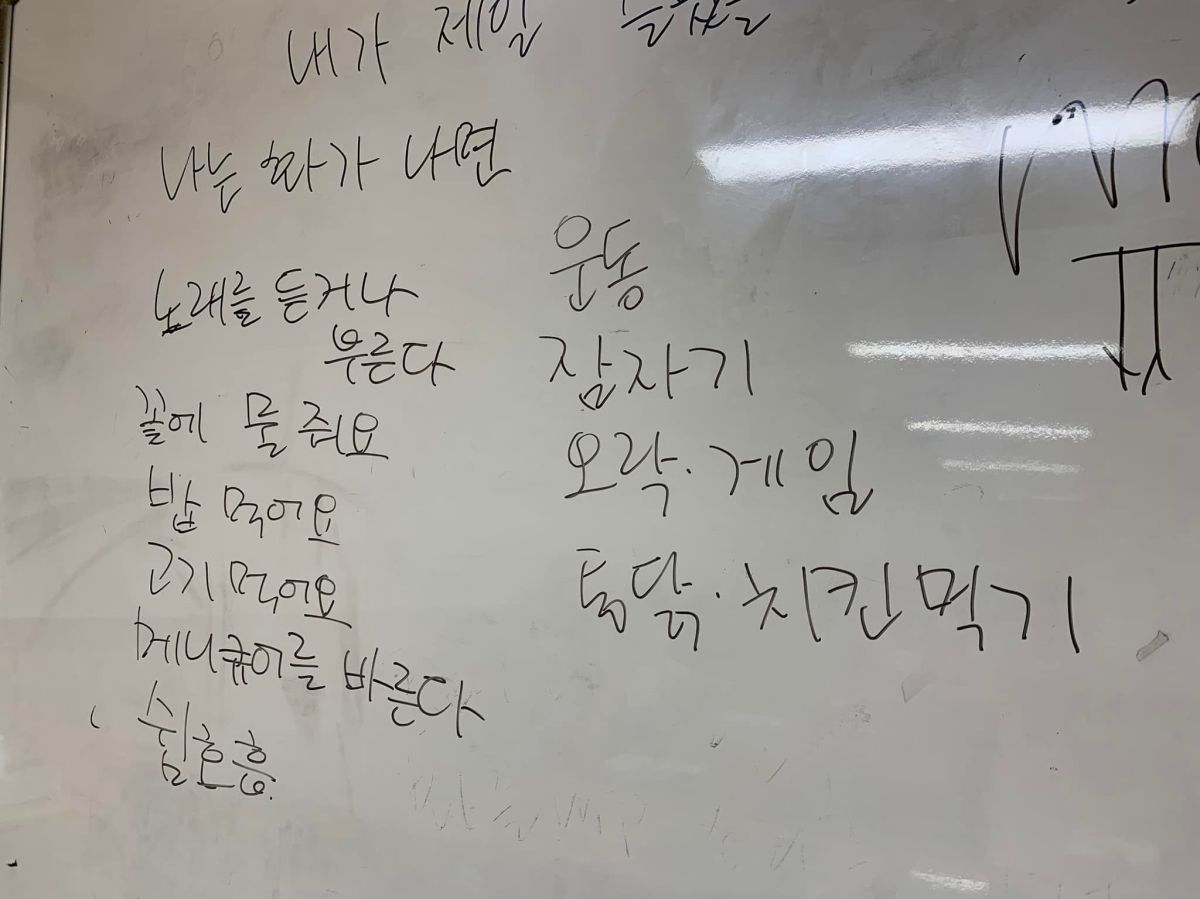 내가 제일
나는 화가 나면
노래를 듣거나
부른다
꽃에 물 줘요
밥 먹어요
고기 먹어요
메니큐어를 바른다
쉼호흡
운동
잠자기
오락·게임
통닭·치킨먹기